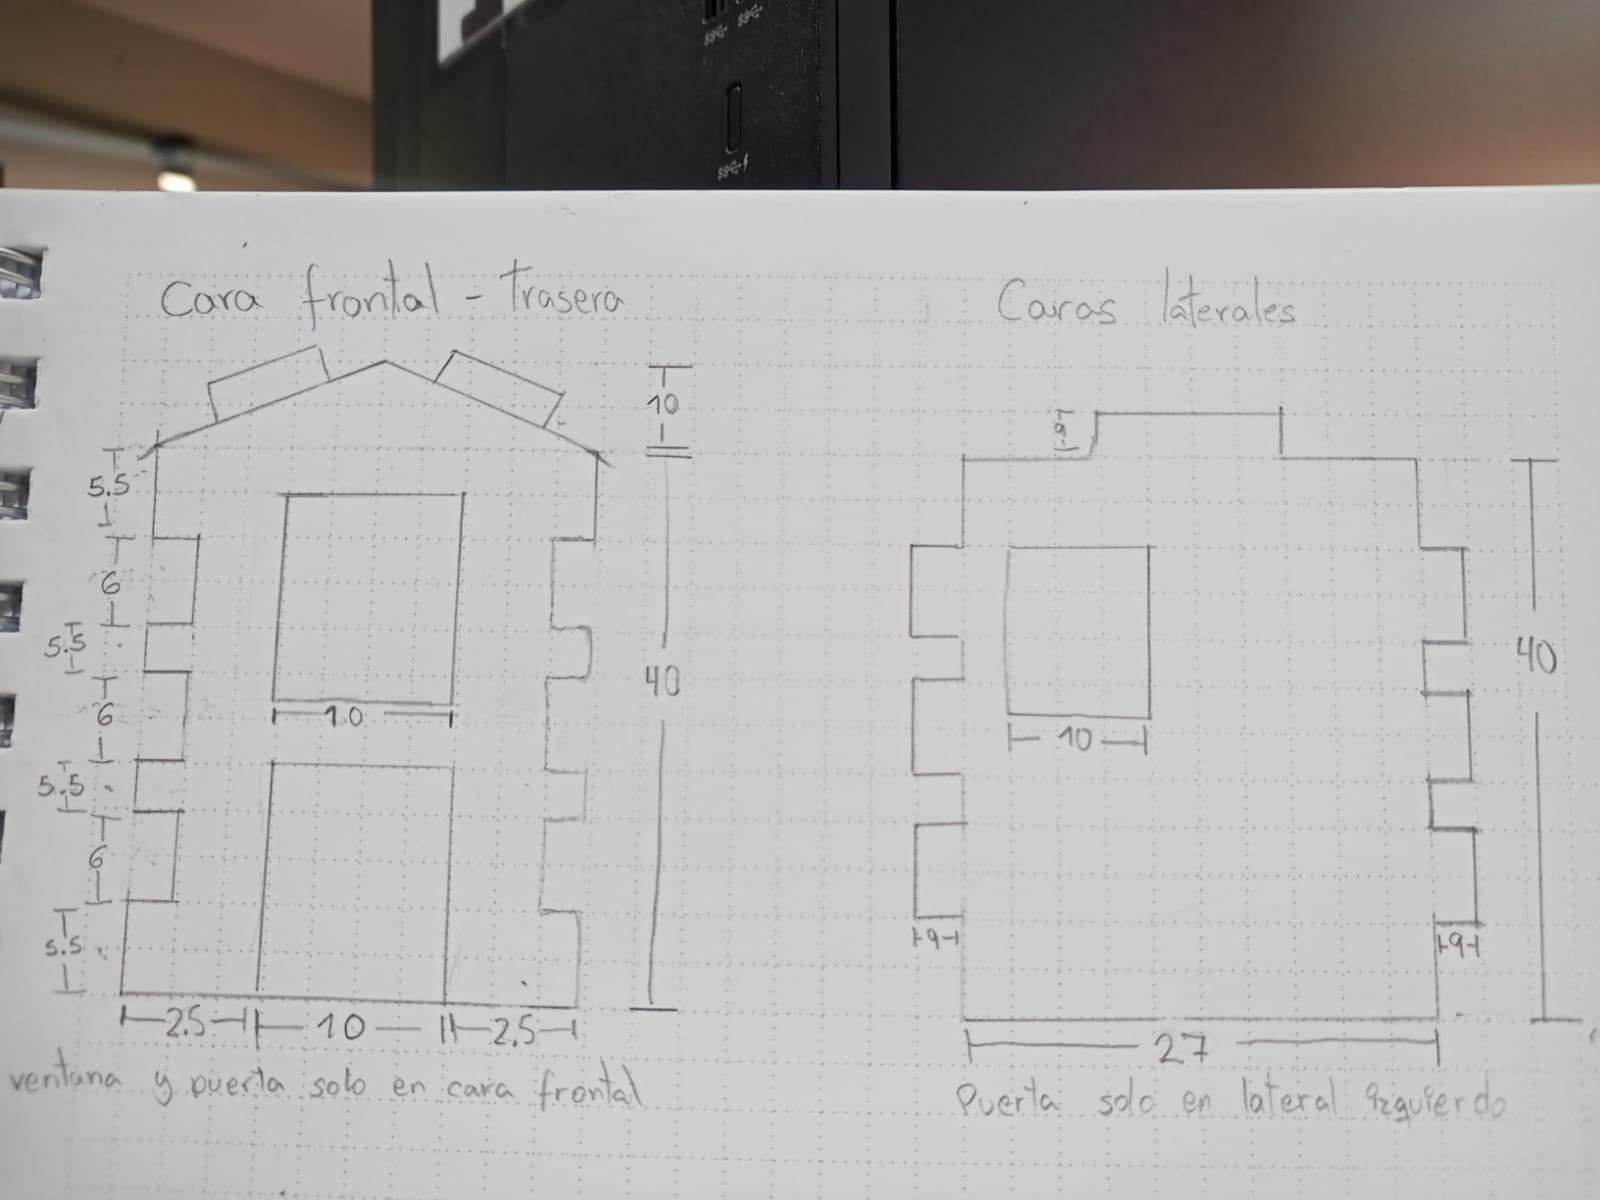 Cara frontal - Trasera
Caras laterales
10
5.5
6
5.5
6
5.5
6
5.5
10
40
2.5
10
2.5
ventana y puerta solo en cara frontal
9
10
40
9
9
27
Puerta solo en lateral izquierdo